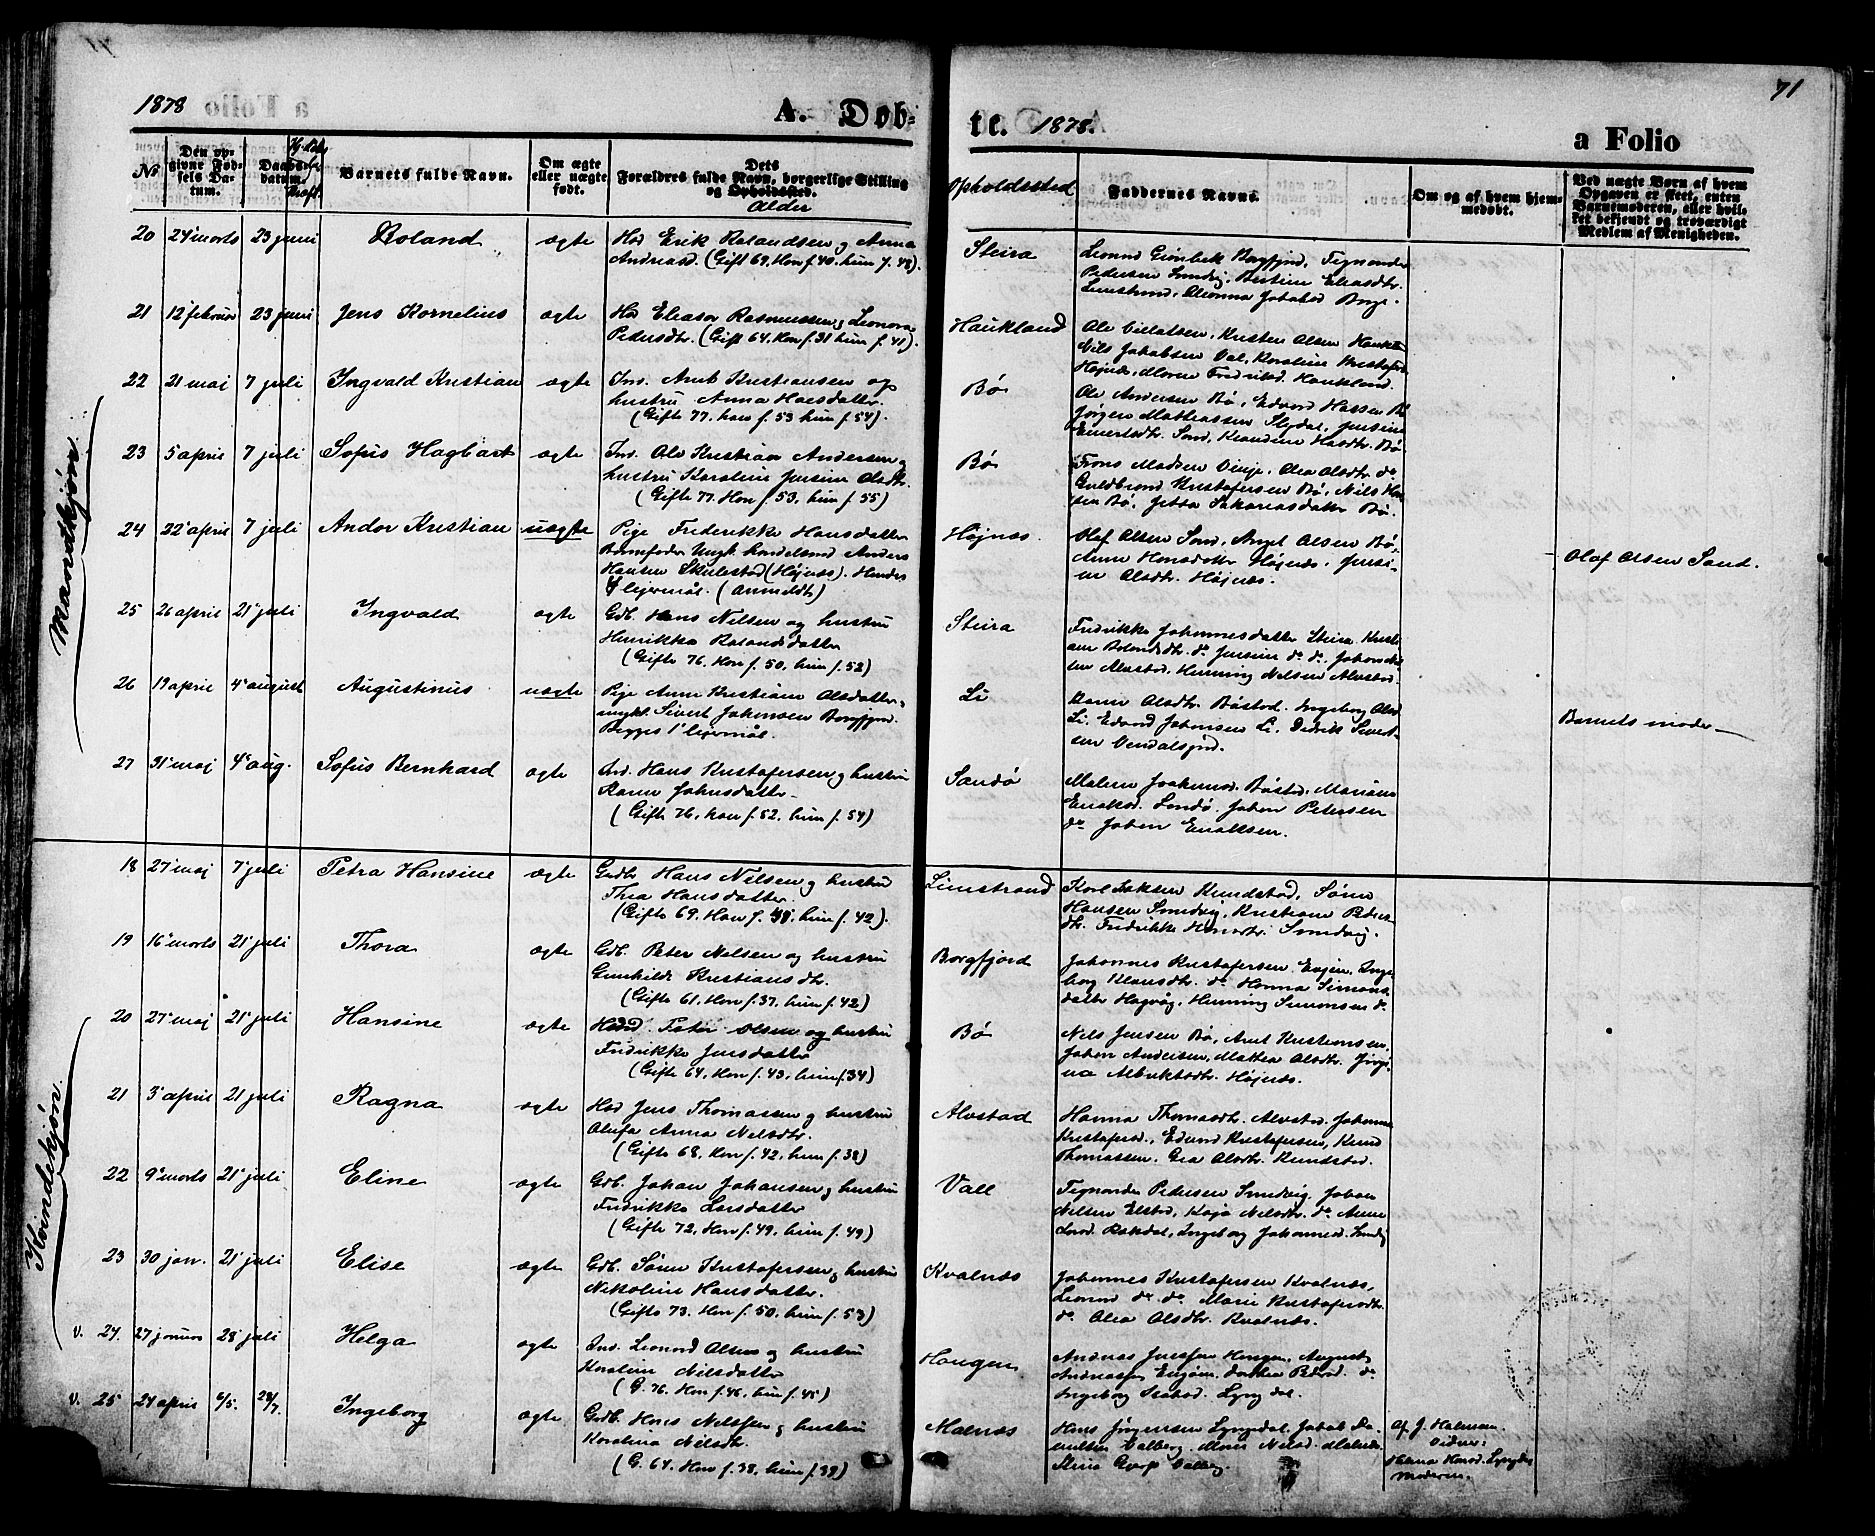 1878
A. Døb-
te. 1878.
a Folio
71
No
Den op-
givne Fød-
sels Da-
tum.
Daabs-
datum.
Barnets fulde Navn.
Om ægte
eller uægte
født.
Dets
Forældres fulde Navn, borgerlige Stilling
og Opholdssted.
Alder
Opholdssted
Faddernes Navne.
Om og af hvem hjem-
medøbt.
Ved uægte Børn af hvem
Opgaven er skeet, enten
Barnemoderen, eller hvil-
ket bekjendt og troværdigt
Medlem af Menigheden.
Mandkjøn
20 24 marts 23 juni Roland ægte Hsd Erik Rolandsen og Anna
Andreasd. (Gift 69. Han f. 40. hun f. 48). Steira
Pedersen Sundvig, Elleasdtr.
21 12 februar 23 juni Jens Kornelius ægte Hsd Eleasar Rasmussen og Leonora
Pedersdtr. (Gift 64. Han f. 31 hun f. 41). Haukland
Nils Jakobsen Val,
22 21 maj 7 juli Ingvald Kristian ægte Ins. Arnt Kristiansen og
hustru Anna Hansdatter.
(Gifte 77. han f. 53 hun f. 54). Bø
Ole Andersen Bø, Edvard Hansen Bø
Jørgen Mathiassen Slydal, Jensine
Einertsdtr. Sand, Klaudine Hansdtr. Bø.
23 5 april 7 juli Sofus Hagbart ægte Ins. Ole Kristian Andersen og
hustru Karoline Jensine Olsdtr.
(Gifte 77. Han f. 53, hun f. 55) Bø
Frans Madsen Vinje, Olea Olsdtr. do
Guldbrand Kristofersen Bø, Nils Han-
sen Bø, Jetta Sakariasdatter Bø.
24 22 april 7 juli Andor Kristian uægte Pige Frederikke Hansdatter
Barnefader Ungk. Anders
Hansen Skulestad (Højnæs). Hendes
lejermål. (Anmeldt) Højnæs.
Olaf Olsen Sand, Angel Olsen Bø,
Anne Hansdatter Højnæs, Jensi-
ne Olsdtr. Højnæs.
Olaf Olsen Sand.
25 26 april 21 juli Ingvald ægte Gdb. Hans Nilsen og hustru
Henrikka Rolandsdatter
(Gifte 76. Han f. 50, hun f. 52) Steira
Fredrikke Johannesdatter Steira, Kristi-
ane Rolandsdtr. do Jensine do do,
Alvstad, Henning Nilsen Alvstad.
26 19 april 4 august Augustinus uægte Pige Anne Kristiane Olsdatter,
ungk. Sivert Johansen Borgfjord.
Begges 1 lejermål. Li
Karen Olsdtr. Bøstad, Ingeborg Olsd
Li, Edvard Johnsen Li, Didrik Sivert-
sen
Barnets moder
27 31 maj 4 aug. Sofus Bernhard ægte Ins. Hans Kristofersen og hustru
Karen Johnsdatter
(Gifte 76, han f. 52, hun f. 54) Sandø
Malene Joakimsd. Bøstad, Mariane
Enoksd. Sandø. Johan Petersen
do Johan Enoksen.
Kvindekjøn.
18 27 maj 7 juli Petra Hansine ægte Grdbr. Hans Nilsen og hustru
Thea Hansdatter
(Gifte 69. Han f. 48, hun f. 42). Limstrand
Karl Isaksen Knudstad, Søren
Hansen Sundvig, Kristiane Peders-
dtr. Fredrikke Hansdtr. Sundvig.
19 16 marts 21 juli Thora ægte Gdb. Peter Nilsen og hustru
Gunhilde Kristiansdtr.
(Gifte 61. Han f. 37. hun f. 42) Borgfjord
Johannes Kristofersen Inge-
borg Klausdtr. do Hanna Simons-
datter Hagvåg, Henning Simonsen do
20 27 maj 21 juli Hansine ægte Hsd. Peter Olsen og hustru
Fredrikke Jensdatter
(Gifte 64. Han f. 43, hun f. 34) Bø
Nils Jensen Bø, Arnt Kristiansen,
Johan Andersen, Mathea Olsdtr.
Albriktsdtr. Højnæs.
21 3 april 21 juli Ragna ægte Hsd Jens Thomassen og hustru
Olufa Anna Nilsdtr.
(Gifte 68. Han f. 42, hun f. 38) Alvstad
Hanna Thomasdtr. Alvstad. Johanna
Kristofersd., Edvard Kristofersen, Knud
Thomassen. Gea Olsdtr. Knudstad.
22 9 marts 21 juli Eline ægte Gdb. Johan Johansen og hustru
Fredrikke Larsdatter
(Gifte 72. Han f. 49, hun f. 49) Vall
Pedersen Sundvig, Johan
Nilsen Elstad, Kaja Nilsdtr. do Anne
Larsd. Rekdal, Ingeborg Johannesd. Sundvig
23 30 jan. 21 juli Elise ægte Gdb. Søren Kristofersen og hustru
Nikoline Hansdatter.
(Gifte 73. Han f. 50, hun f. 53) Kvalnæs
Johannes Kristofersen Kvalnæs,
Leonard do do Marie Kristofersdtr.
do Olea Olsdtr. Kvalnæs.
v. 24. 27 januar 28 juli Helga ægte Ins. Leonard Olsen og hustru
Karoline Nilsdatter
(G. 76. Han f. 46, hun f. 45) Haugen
Andreas Haugen, August
Dorthea Pedersd. do
Ingeborg Lyngdal.
v. 25 24 april 6/5. 28/7. Ingeborg ægte Grdb. Hans Nilssen og hustru
Karolina Nilsdtr.
(G. 64. Han f. 38, hun f. 39) Malnæs
Hans Jørgensen Lyngedal, Jakob Da-
nielsen Valberg,
Valberg.
Af J. Halvorsen
Vidner:
Moderen.